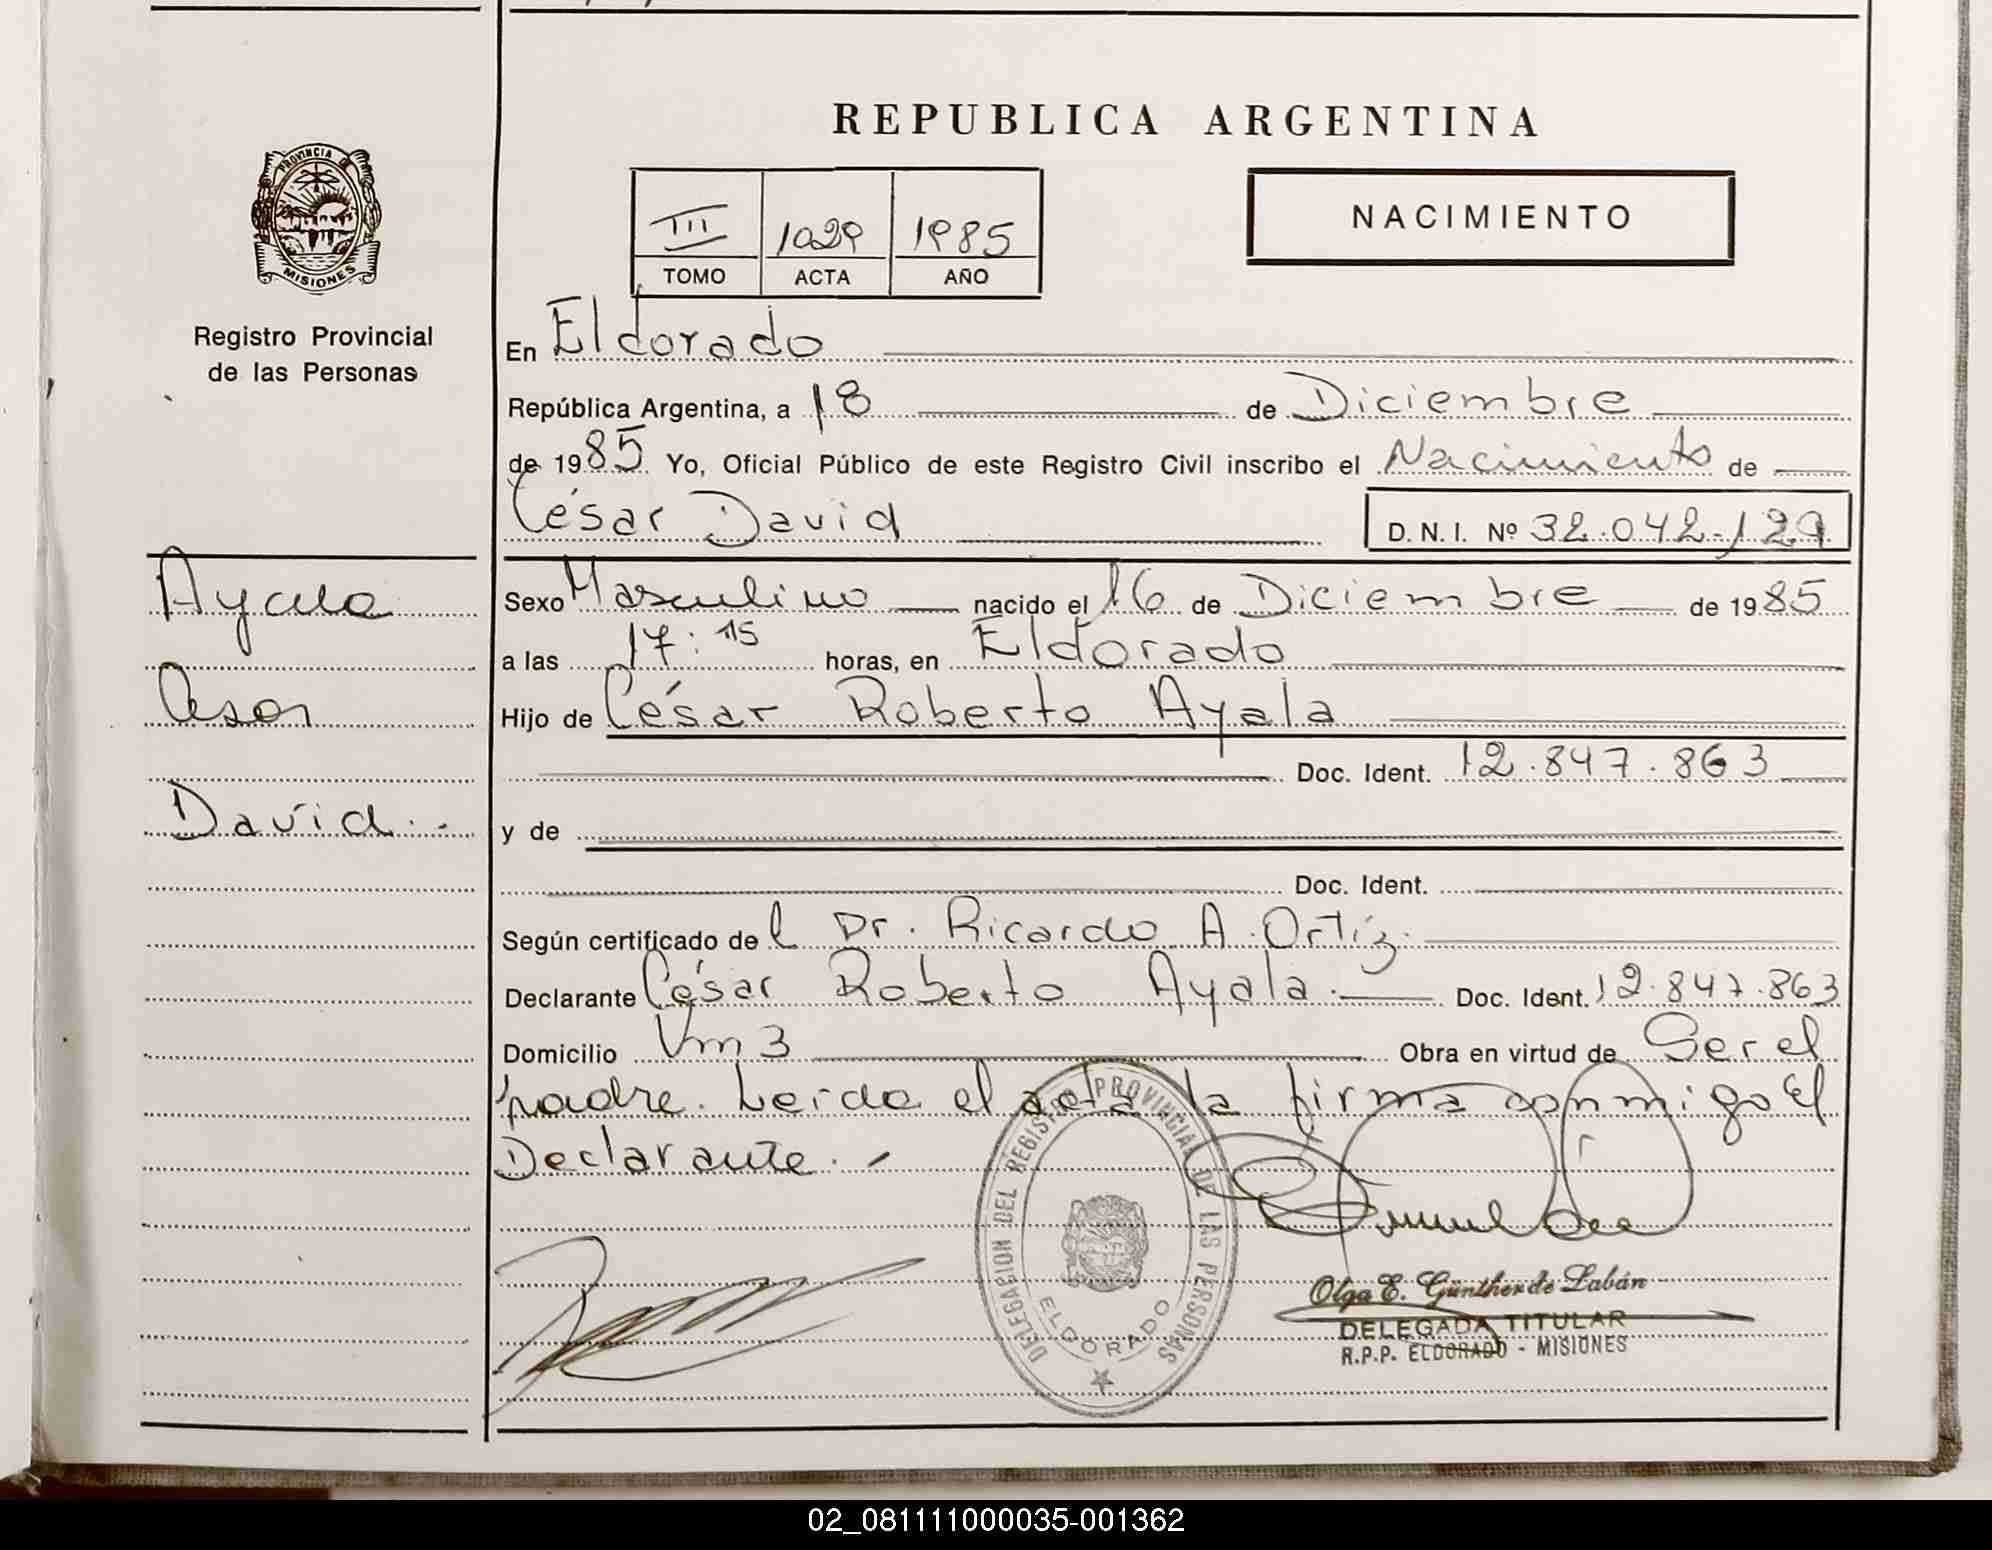 REPUBLICA ARGENTINA
PROVINCIA DE
MISIONES
Registro Provincial
de las Personas
III 1029 1985
TOMO ACTA AÑO
NACIMIENTO
En Eldorado
República Argentina, a 18 de Diciembre
de 1985 Yo, Oficial Público de este Registro Civil inscribo el Nacimiento de
César David
D. N. I. Nº 32.042.129
Ayala
César
David.-
Sexo Masculino nacido el 16 de Diciembre de 1985
a las 17:15 horas, en Eldorado
Hijo de César Roberto Ayala
Doc. Ident. 12.847.863
y de
Doc. Ident.
Según certificado del Dr. Ricardo A. Ortíz.
Declarante César Roberto Ayala. Doc. Ident. 12.847.863
Domicilio Km 3 Obra en virtud de Ser el
padre. Leida el acta la firma conmigo el
Declarante.-
DELEGACION DEL REGISTRO PROVINCIAL DE LAS PERSONAS
ELDORADO
Olga E. Günther de Labán
DELEGADA TITULAR
R.P.P. ELDORADO - MISIONES
02_081111000035-001362